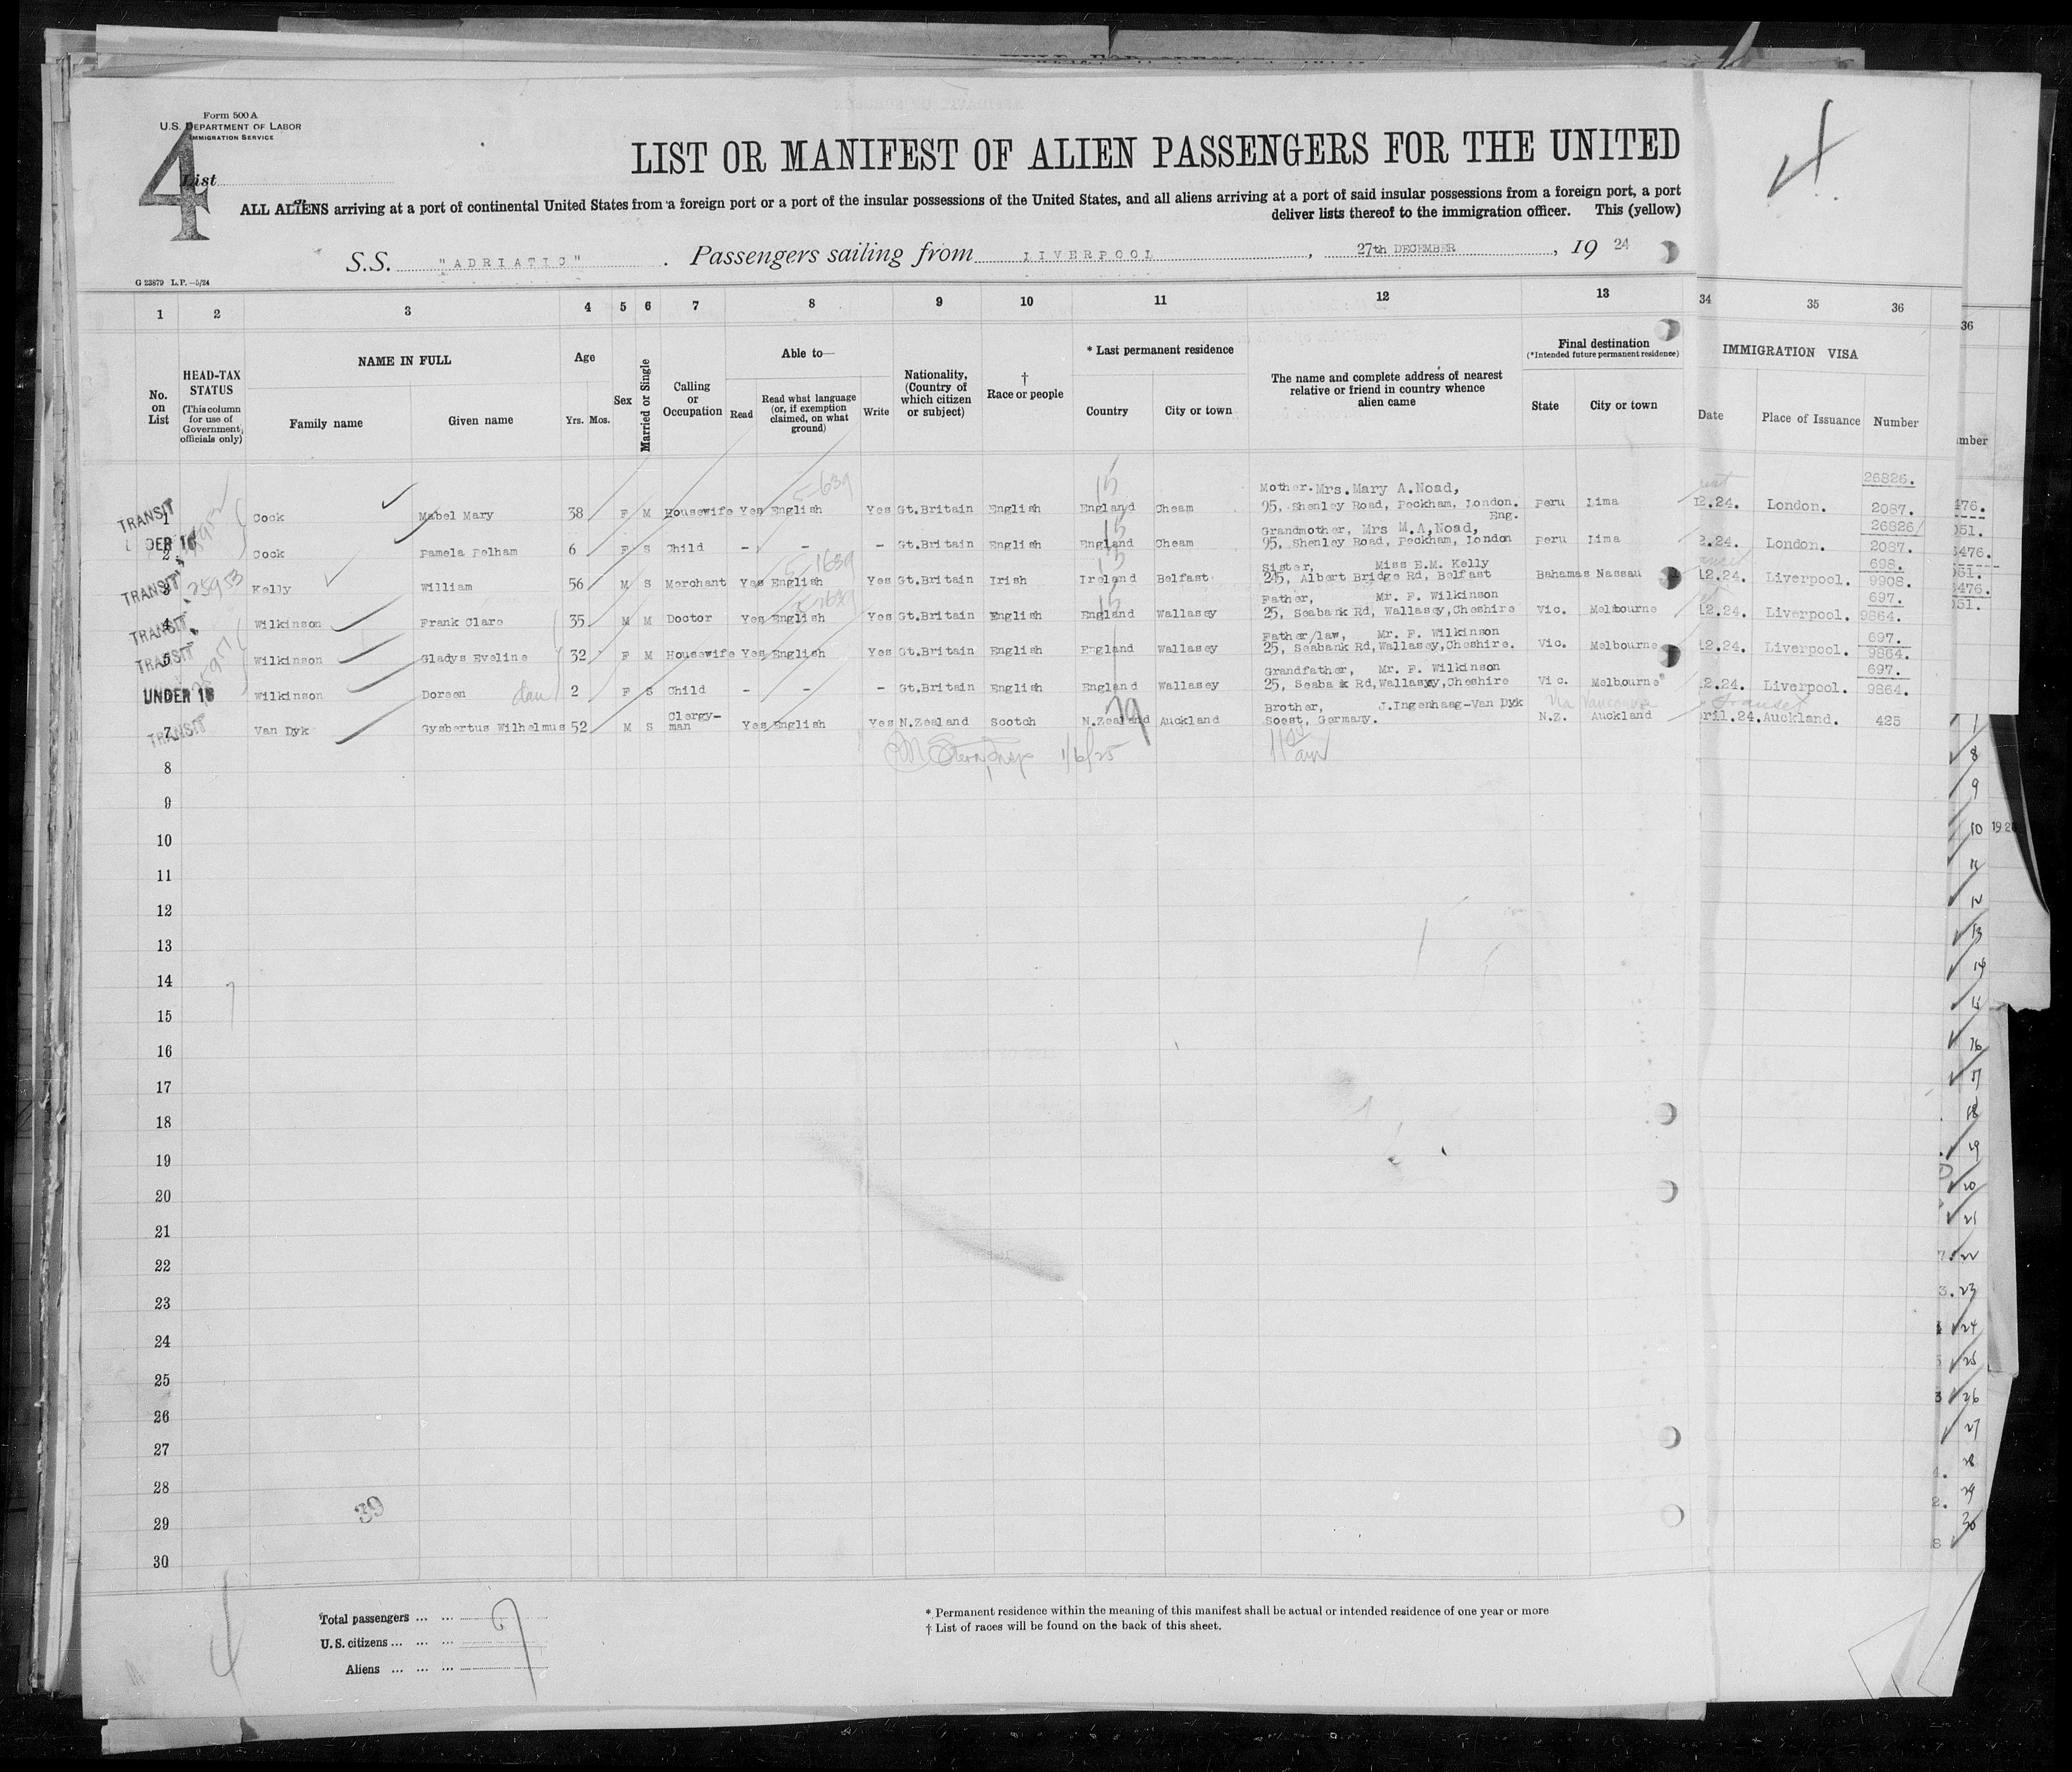 Form 500 A
U.S. DEPARTMENT OF LABOR
IMMIGRATION SERVICE
4
List
LIST OR MANIFEST OF ALIEN PASSENGERS FOR THE UNITED
ALL ALIENS arriving at a port of continental United States from a foreign port or a port of the insular possessions of the United States, and all aliens arriving at a port of said insular possessions from a foreign port, a port
deliver lists thereof to the immigration officer. This (yellow)
S.S. "ADRIATIC" . Passengers sailing from LIVERPOOL , 27th DECEMBER , 19 24
G 23879 L.P.—5/24
1 2 3 4 5 6 7 8 9 10 11 12 13 34 35 36
No. on List
HEAD-TAX STATUS
(This column for use of Government officials only)
NAME IN FULL
Family name Given name
Age
Yrs. Mos.
Sex
Married or Single
Calling or Occupation
Able to—
Read
Read what language (or, if exemption claimed, on what ground)
Write
Nationality, (Country of which citizen or subject)
† Race or people
* Last permanent residence
Country City or town
The name and complete address of nearest relative or friend in country whence alien came
Final destination
(*Intended future permanent residence)
State City or town
IMMIGRATION VISA
Date Place of Issuance Number
5-639 15 Mother. Mrs. Mary A. Noad, 26826.
TRANSIT 1 Cock Mabel Mary 38 F M Housewife Yes English Yes Gt.Britain English England Cheam 95, Shenley Road, Peckham, London. Eng. Peru Lima 12.24. London. 2087.
15 Grandmother, Mrs M.A, Noad, 26826/
2 Cock Pamela Pelham 6 F S Child - - - Gt.Britain English England Cheam 95, Shenley Road, Peckham, London Peru Lima 2.24. London. 2087.
5-1639 Sister, Miss E.M. Kelly 698.
TRANSIT 3 25953 Kelly William 56 M S Merchant Yes English Yes Gt.Britain Irish Ireland Belfast 245, Albert Bridge Rd, Belfast Bahamas Nassau 12.24. Liverpool. 9908.
15 Father, Mr. F. Wilkinson 697.
TRANSIT 4 Wilkinson Frank Clare 35 M M Doctor Yes English Yes Gt.Britain English England Wallasey 25, Seabank Rd, Wallasey, Cheshire Vic. Melbourne 12.24. Liverpool. 9864.
Father/law, Mr. F. Wilkinson 697.
TRANSIT 5 Wilkinson Gladys Eveline 32 F M Housewife Yes English Yes Gt.Britain English England Wallasey 25, Seabank Rd, Wallasey, Cheshire. Vic. Melbourne 12.24. Liverpool. 9864.
Grandfather, Mr. F. Wilkinson 697.
UNDER 16 Wilkinson Doreen dau 2 F S Child - - - Gt.Britain English England Wallasey 25, Seabank Rd, Wallasey, Cheshire Vic. Melbourne 12.24. Liverpool. 9864.
Brother, J.Ingenhaag-Van Dyk via Vancouver Transit
TRANSIT 7 Van Dyk Gysbertus Wilhelmus 52 M S Clergyman Yes English Yes N.Zealand Scotch N.Zealand Auckland Soest, Germany. N.Z. Auckland pril.24. Auckland. 425
1/6/25
8
9
10
11
12
13
14
15
16
17
18
19
20
21
22
23
24
25
26
27
28
29
30
39
Total passengers ... ... 7
U.S. citizens ... ... ...
Aliens ... ... ...
* Permanent residence within the meaning of this manifest shall be actual or intended residence of one year or more
† List of races will be found on the back of this sheet.